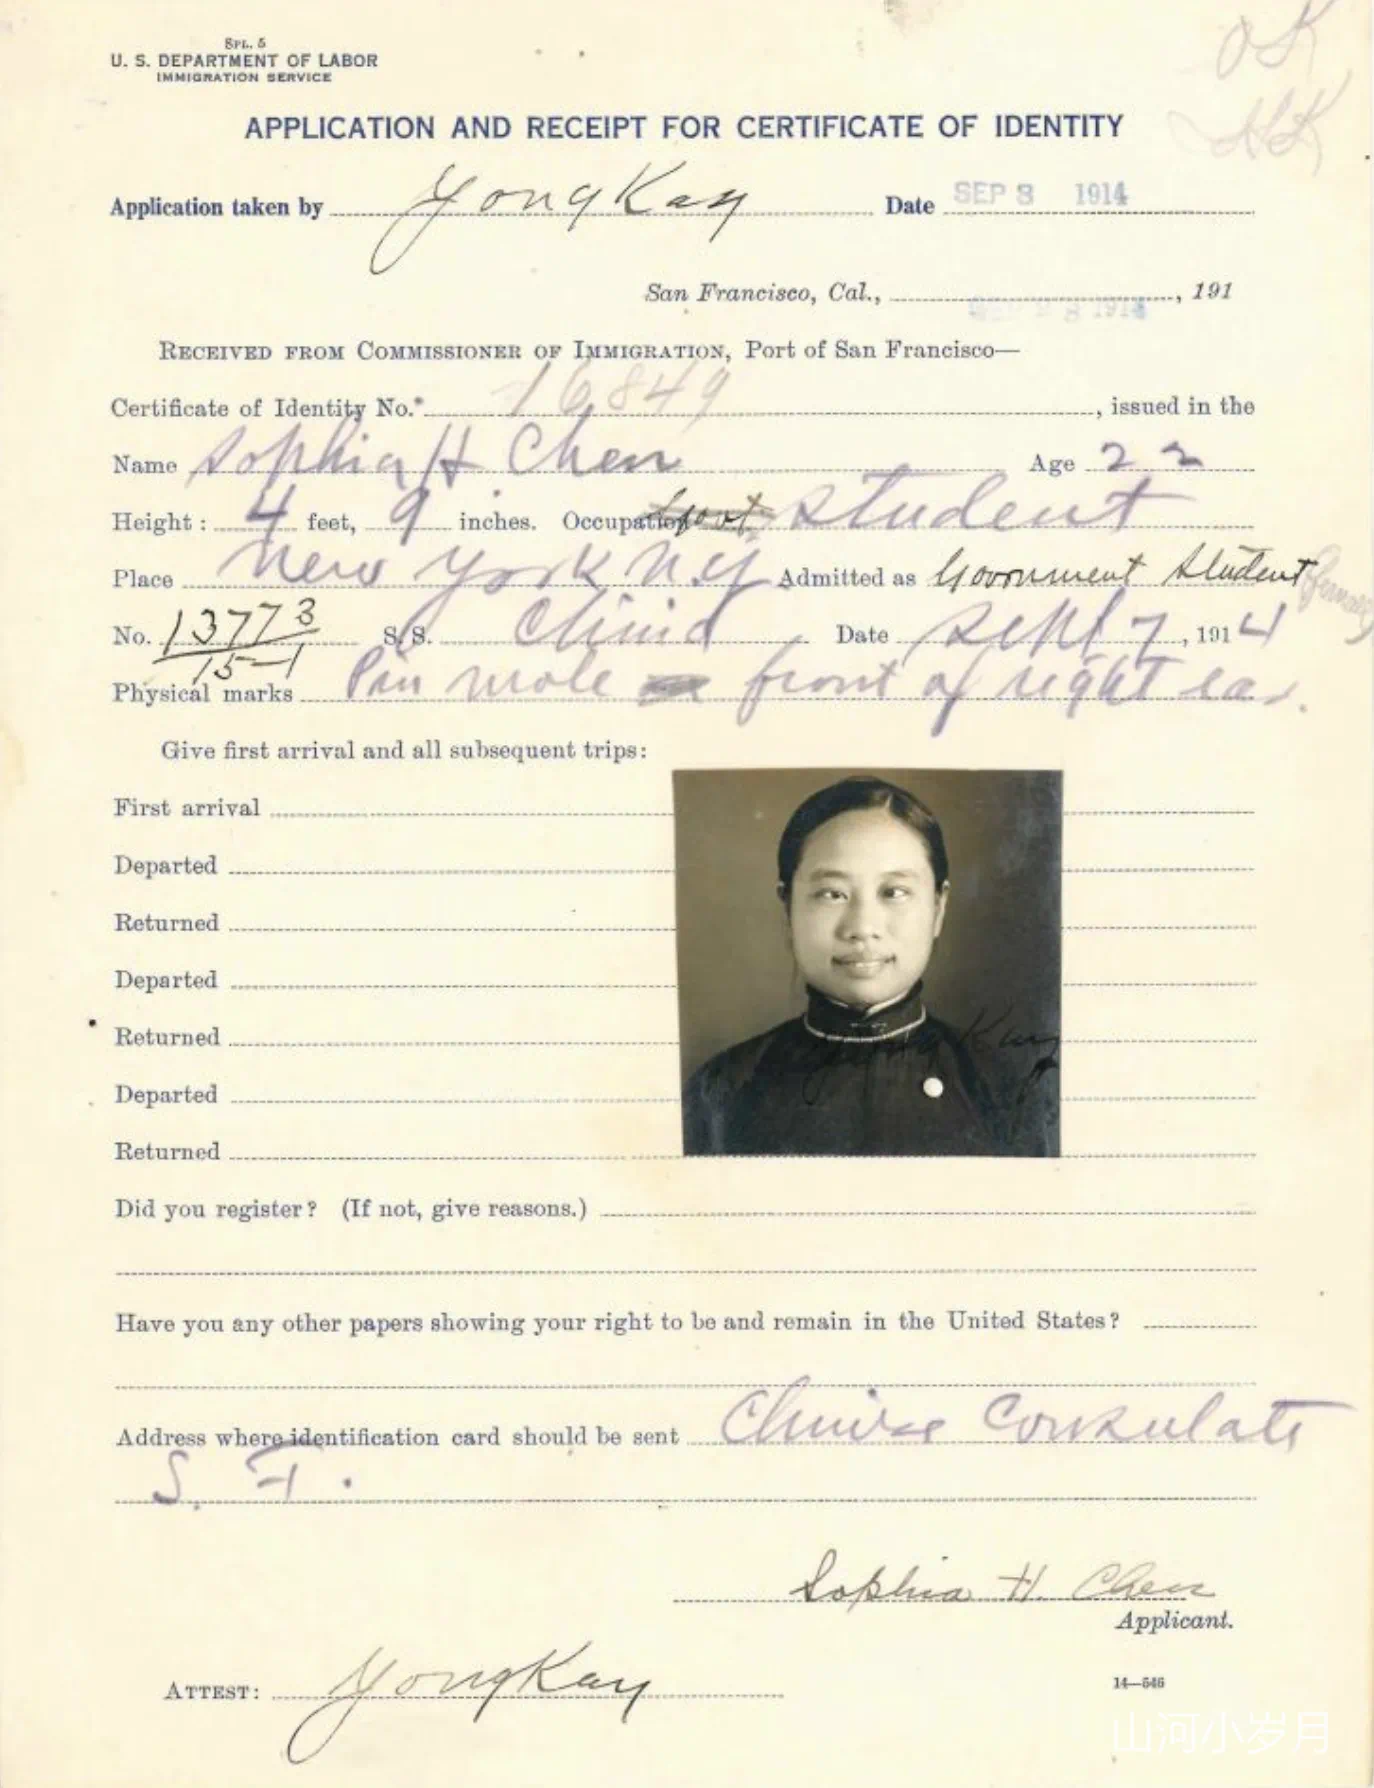 SPL. 5
U. S. DEPARTMENT OF LABOR
IMMIGRATION SERVICE
OK
APPLICATION AND RECEIPT FOR CERTIFICATE OF IDENTITY
Application taken by Yong Kay Date SEP 8 1914
San Francisco, Cal., 1914, 191
RECEIVED FROM COMMISSIONER OF IMMIGRATION, Port of San Francisco—
Certificate of Identity No.* 16849, issued in the
Name Sophia H Chen Age 22
Height: 4 feet, 9 inches. Occupation student
Place New York N.Y Admitted as Government student (female)
No. 13773 S.S. China Date Sept 7, 1914
15-1
Physical marks Pin mole front of right ear.
Give first arrival and all subsequent trips:
First arrival
Departed
Returned
Departed
Returned
Yong Kay
Departed
Returned
Did you register? (If not, give reasons.)
Have you any other papers showing your right to be and remain in the United States?
Address where identification card should be sent Chinese Consulate
S. F.
Sophia H. Chen
Applicant.
ATTEST: Yong Kay
14—546
山河小岁月